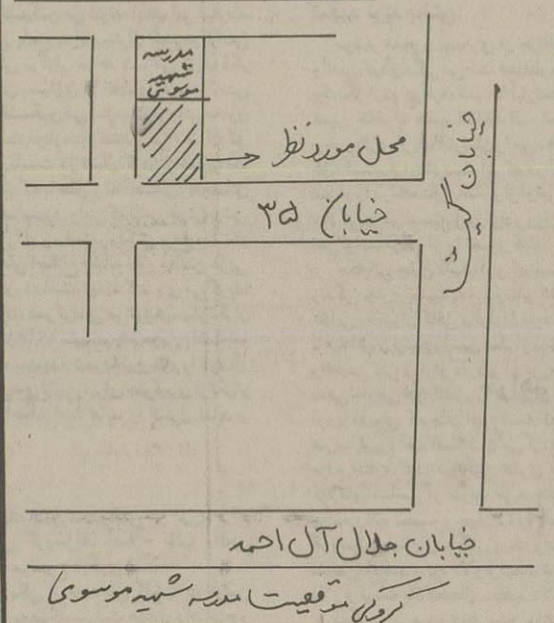 مدرسه
شهید
موسوی
محل مورد نظر
خیابان گیشا
خیابان ۳۵
خیابان جلال آل احمد
کروکی موقعیت مدرسه شهید موسوی